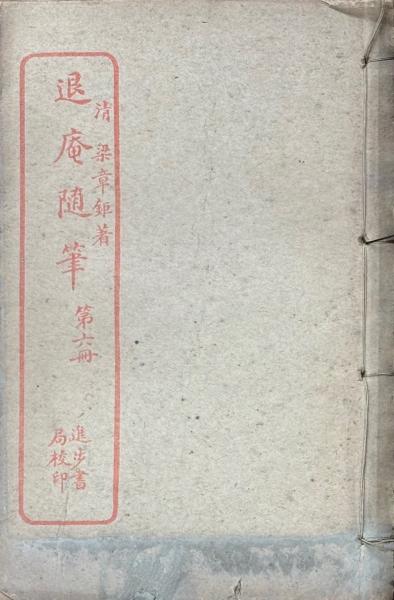 清 梁章鉅著
退庵隨筆 第六冊
進步書
局校印